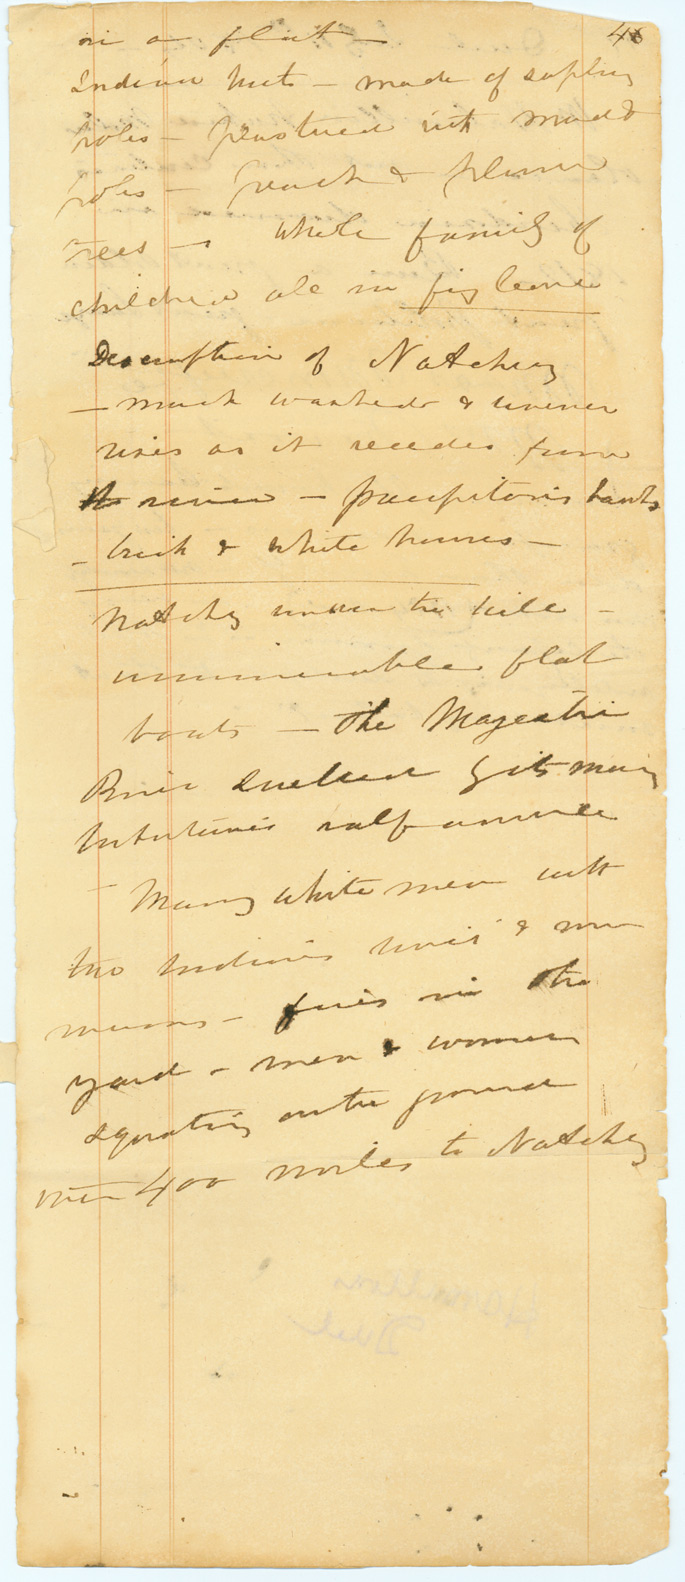 in a flat —
Indian huts — made of sapling
poles — plastered with mud &
poles — peach & plum
trees — whole family of
children all in fig leaves
Description of Natchez
— much washed & uneven
rises as it recedes from
river — precipitous banks
— brick & white houses —
Natchez under the hill —
innumerable flat
boats — the Majestic
River swelled by its many
tributaries half a mile
— Many white men with
the Indians &
— fires in the
yard — men & women
squatting on the ground
over 400 miles to Natchez